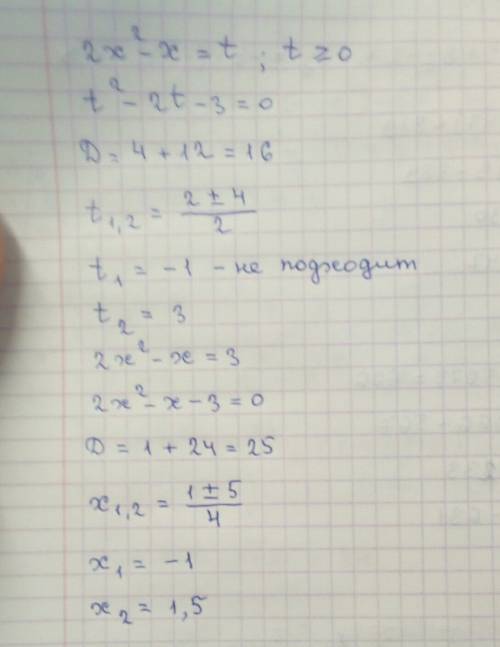 2x² - x = t ; t ≥ 0
t² - 2t - 3 = 0
D = 4 + 12 = 16
t₁,₂ = (2 ± 4)/2
t₁ = -1 - не подходит
t₂ = 3
2x² - x = 3
2x² - x - 3 = 0
D = 1 + 24 = 25
x₁,₂ = (1 ± 5)/4
x₁ = -1
x₂ = 1,5